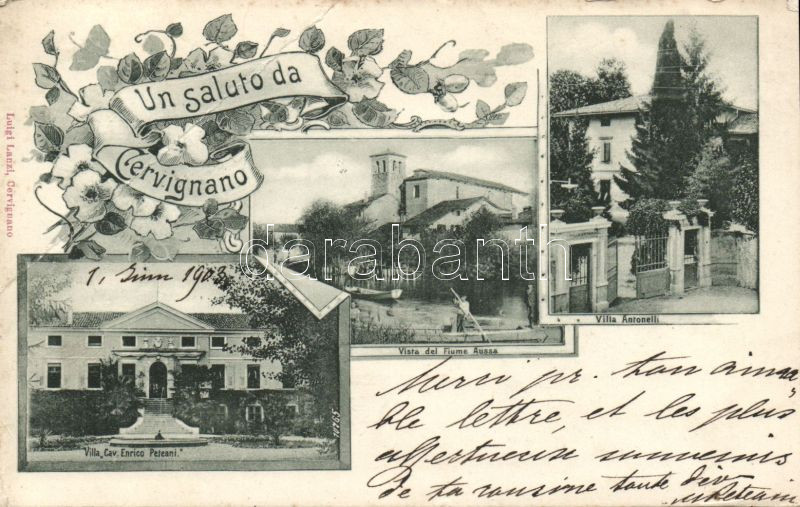 Un saluto da
Cervignano
Luigi Lanzi, Cervignano
Villa Antonelli
Vista del Fiume Aussa
Villa „Cav. Enrico Peteani."
77765
1. 1903
darabanth
Merci pr. ton aima„
ble lettre, et les plus
affectueux souvenirs
de ta cousine toute